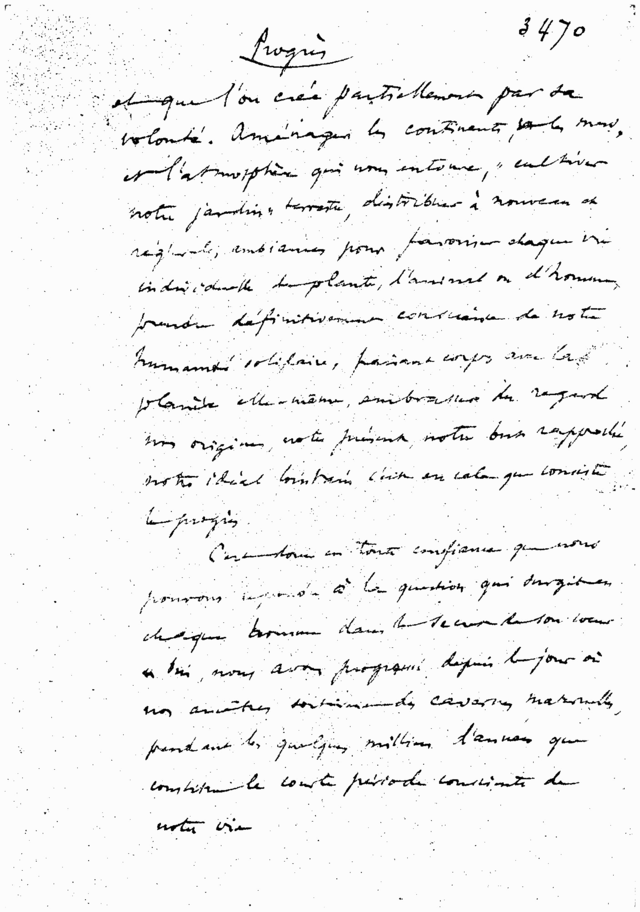 3470
Progrès
et que l'on crée partiellement par sa
volonté. Aménager les continents, les mers,
et l'atmosphère qui nous entoure, " cultiver
notre jardin " terrestre, distribuer à nouveau et
régler les ambiances pour favoriser chaque vie
individuelle de plante, d'animal ou d'homme,
prendre définitivement conscience de notre
humanité solidaire, faisant corps avec la
planète elle-même, embrasser du regard
nos origines, notre présent, notre but rapproché,
notre idéal lointain c'est en cela que consiste
le progrès.
C'est donc en toute confiance que nous
pouvons répondre à la question qui surgit en
chaque homme dans le secret de son cœur
oui, nous avons progressé depuis le jour où
nos ancêtres sortirent des cavernes maternelles,
pendant les quelques milliers d'années que
constitue la courte période consciente de
notre vie